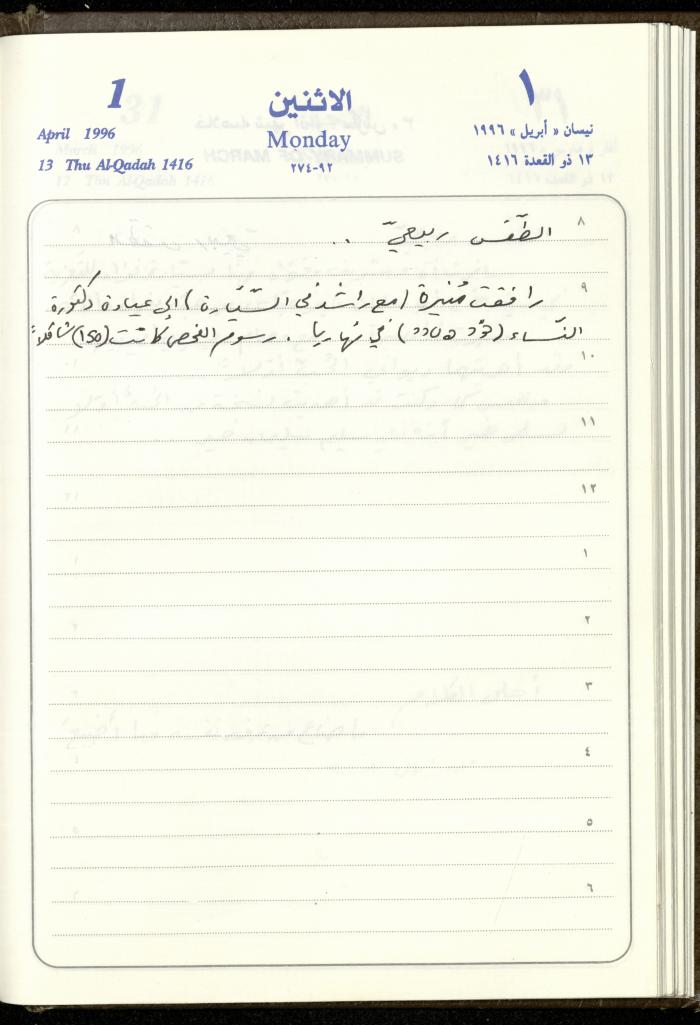 1
الاثنين
١
April 1996
Monday
نيسان « أبريل » ١٩٩٦
13 Thu Al-Qadah 1416
٩٢-٢٧٤
١٣ ذو القعدة ١٤١٦
٨
الطّقس ربيعيّ ..
٩
رافقت مُنيرة (مع راشد في السّيّارة) إلى عيادة دكتورة
النّساء ( ) في نهاريا. رسوم الفحص كانت (150) شاقلاً
١٠
١١
١٢
١
٢
٣
٤
٥
٦